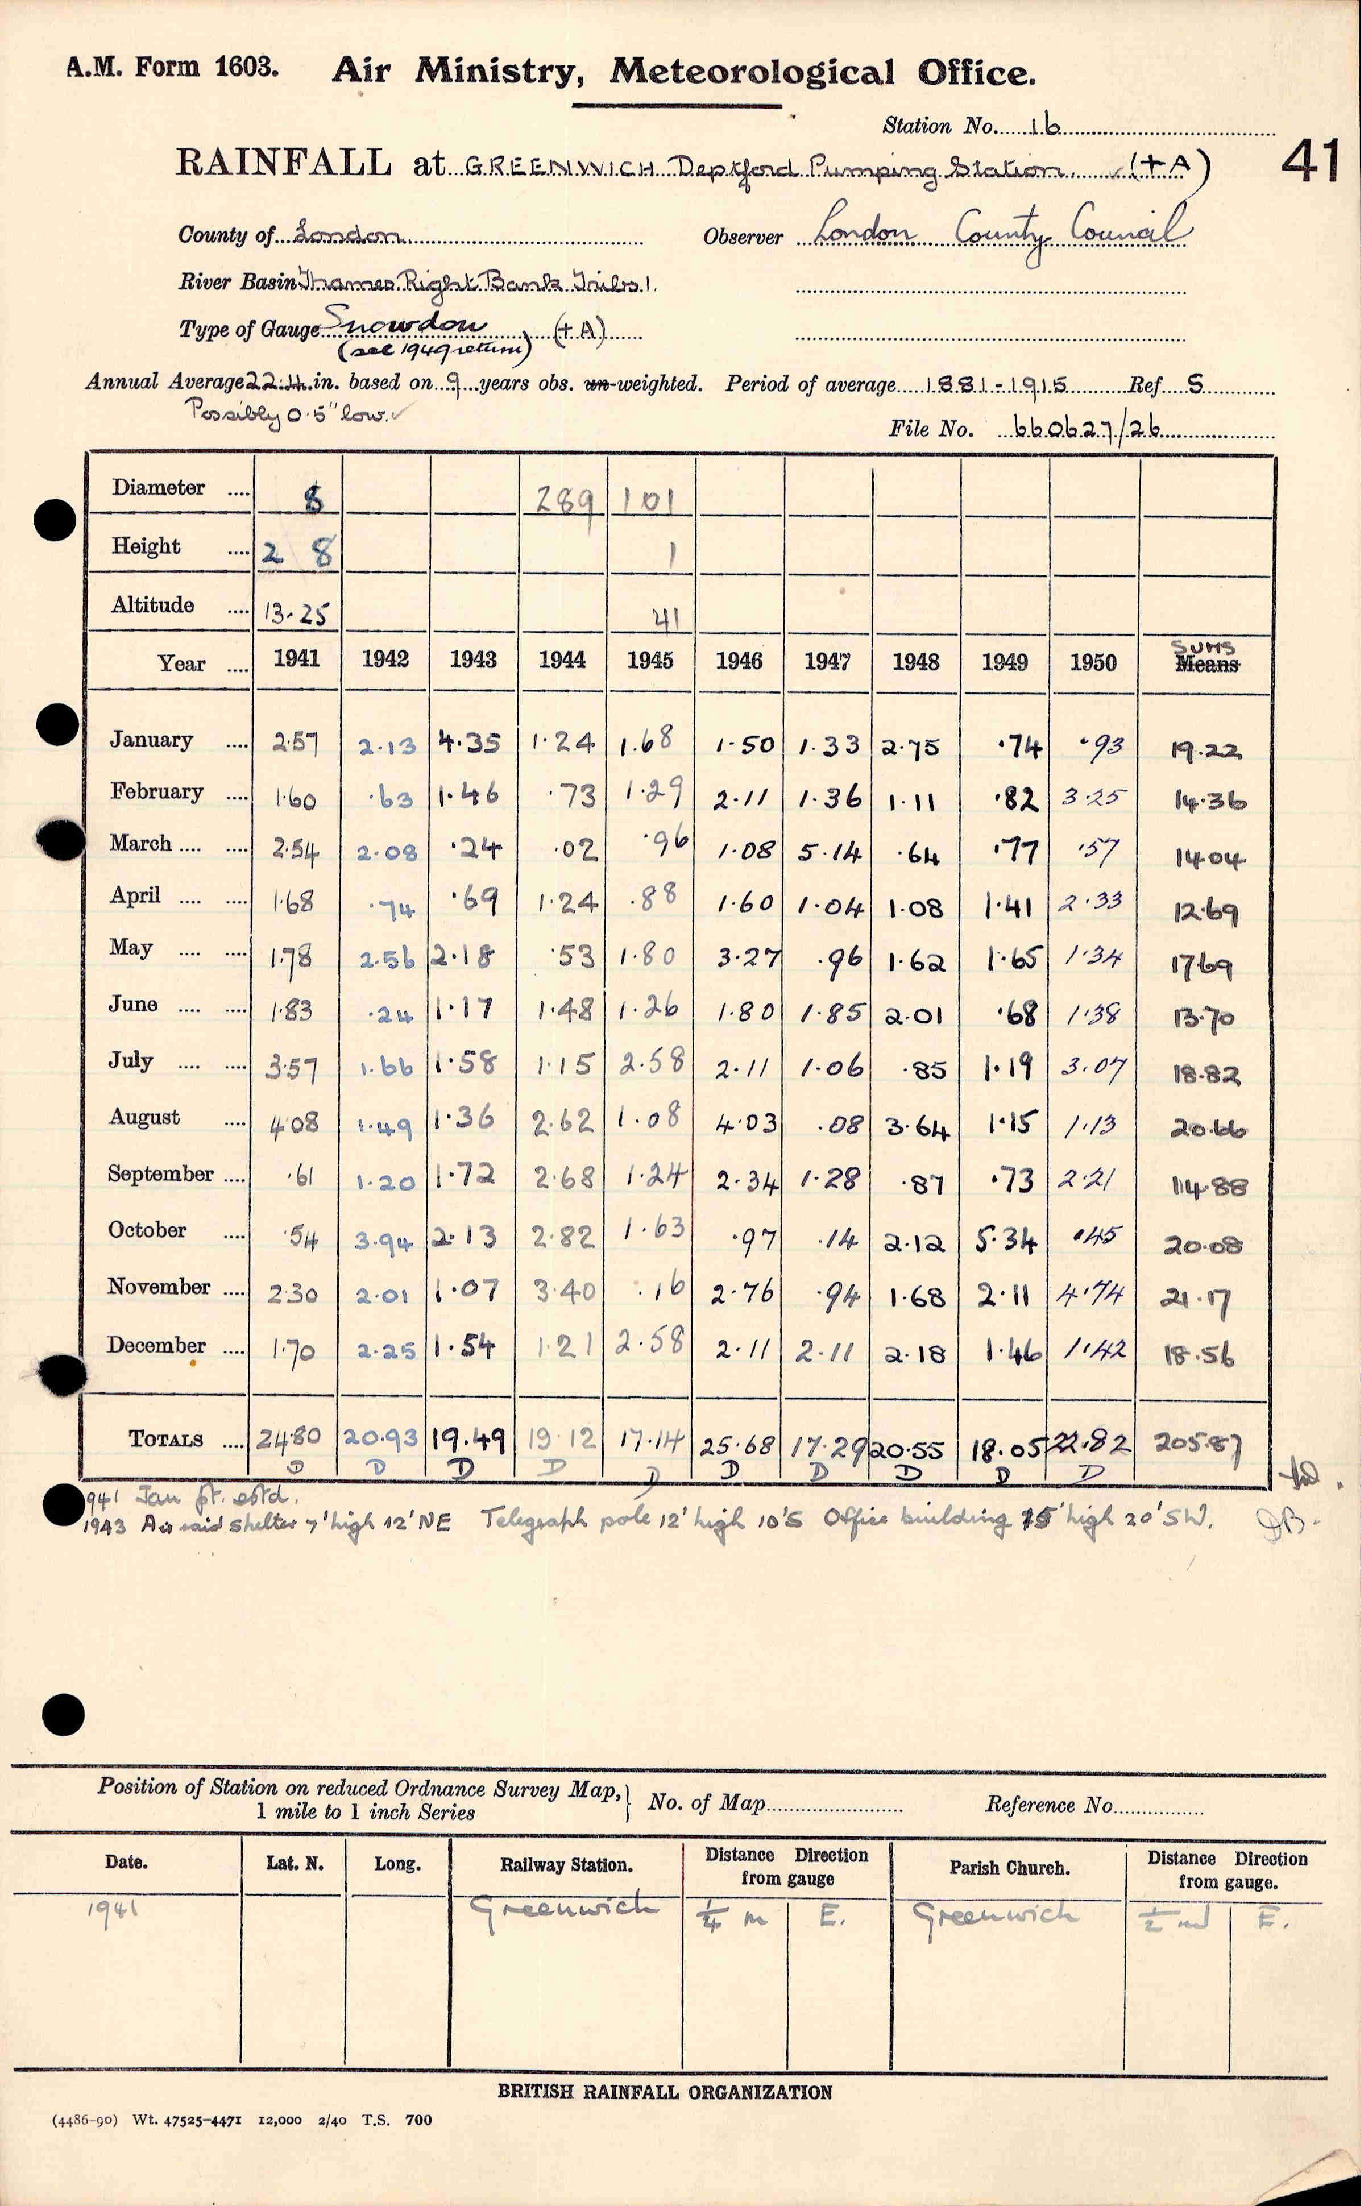 A.M. Form 1603. Air Ministry, Meteorological Office.
Station No. 16
41
RAINFALL at GREENWICH Deptford Pumping Station. ✓ (+A)
County of London Observer London County Council
River Basin Thames Right Bank Tribs 1.
Type of Gauge Snowdon (+A)
(see 1949 return)
Annual Average 22.4 in. based on 9 years obs. un-weighted. Period of average 1881-1915 Ref S
Possibly 0.5" low. ✓
File No. 660627/26
Diameter .... 8 289 101
Height .... 2 8 1
Altitude .... 13.25 41
Year .... 1941 1942 1943 1944 1945 1946 1947 1948 1949 1950 SUMS Means
January .... 2.57 2.13 4.35 1.24 1.68 1.50 1.33 2.75 .74 .93 19.22
February .... 1.60 .63 1.46 .73 1.29 2.11 1.36 1.11 .82 3.25 14.36
March .... .... 2.54 2.08 .24 .02 .96 1.08 5.14 .64 .77 .57 14.04
April .... .... 1.68 .74 .69 1.24 .88 1.60 1.04 1.08 1.41 2.33 12.69
May .... .... 1.78 2.56 2.18 .53 1.80 3.27 .96 1.62 1.65 1.34 17.69
June .... .... 1.83 .24 1.17 1.48 1.26 1.80 1.85 2.01 .68 1.38 13.70
July .... .... 3.57 1.66 1.58 1.15 2.58 2.11 1.06 .85 1.19 3.07 18.82
August .... 4.08 1.49 1.36 2.62 1.08 4.03 .08 3.64 1.15 1.13 20.66
September .... .61 1.20 1.72 2.68 1.24 2.34 1.28 .87 .73 2.21 14.88
October .... .54 3.94 2.13 2.82 1.63 .97 .14 2.12 5.34 .45 20.08
November .... 2.30 2.01 1.07 3.40 .16 2.76 .94 1.68 2.11 4.74 21.17
December .... 1.70 2.25 1.54 1.21 2.58 2.11 2.11 2.18 1.46 1.42 18.56
TOTALS .... 24.80 20.93 19.49 19.12 17.14 25.68 17.29 20.55 18.05 22.82 205.87
D D D D D D D D D D
1941 Jan pt. estd.
1943 Air raid shelter 7' high 12' NE Telegraph pole 12' high 10' S Office building 15' high 20' SW.
Position of Station on reduced Ordnance Survey Map, 1 mile to 1 inch Series } No. of Map Reference No.
Date. Lat. N. Long. Railway Station. Distance Direction from gauge Parish Church. Distance Direction from gauge.
1941 Greenwich 1/4 m E. Greenwich 1/2 ml E.
BRITISH RAINFALL ORGANIZATION
(4486-90) Wt. 47525-4471 12,000 2/40 T.S. 700